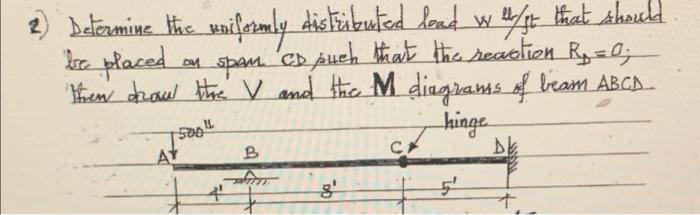 2) Determine the uniformly distributed load w #/ft that should
be placed on span CD such that the reaction R_D = 0;
then draw the V and the M diagrams of beam ABCD.
hinge
500#
A B C D
4' 8' 5'